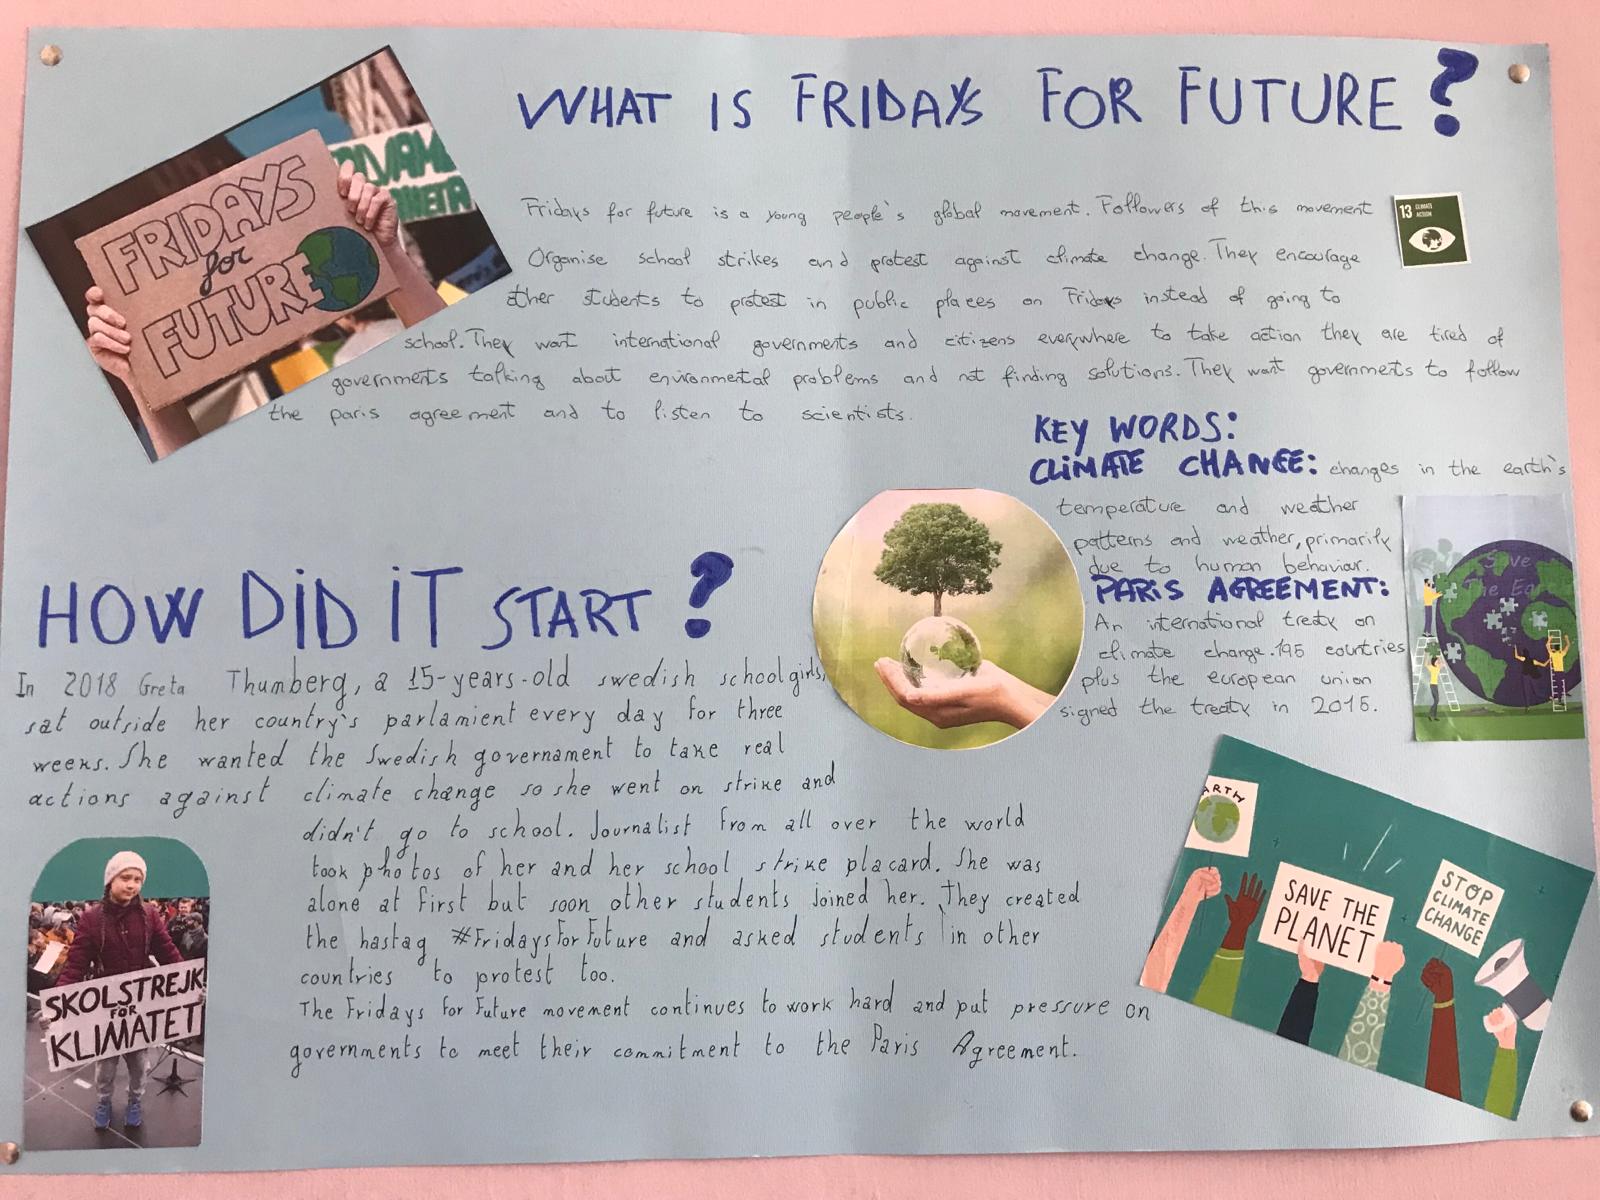 WHAT IS FRIDAYS FOR FUTURE?
FRIDAYS
for
FUTURE
PLANETA
Fridays for future is a young people's global movement. Followers of this movement
Organise school strikes and protest against climate change. They encourage
other students to protest in public places on Fridays instead of going to
school. They want international governments and citizens everywhere to take action they are tired of
governments talking about environmental problems and not finding solutions. They want governments to follow
the paris agreement and to listen to scientists.
13 CLIMATE
ACTION
KEY WORDS:
CLIMATE CHANGE: changes in the earth's
temperature and weather
patterns and weather, primarily
due to human behaviour.
PARIS AGREEMENT:
An international treaty on
climate change. 195 countries
plus the european union
signed the treaty in 2015.
Save
The Ea
HOW DID IT START?
In 2018 Greta Thumberg, a 15-years-old swedish schoolgirls,
sat outside her country's parlamient every day for three
weeks. She wanted the Swedish governament to take real
actions against climate change so she went on strike and
didn't go to school. Journalist from all over the world
took photos of her and her school strike placard. She was
alone at first but soon other students joined her. They created
the hastag #FridaysForFuture and asked students in other
countries to protest too.
The Fridays for Future movement continues to work hard and put pressure on
governments to meet their commitment to the Paris Agreement.
SKOLSTREJK
FÖR
KLIMATET
ARTH
SAVE THE
PLANET
STOP
CLIMATE
CHANGE